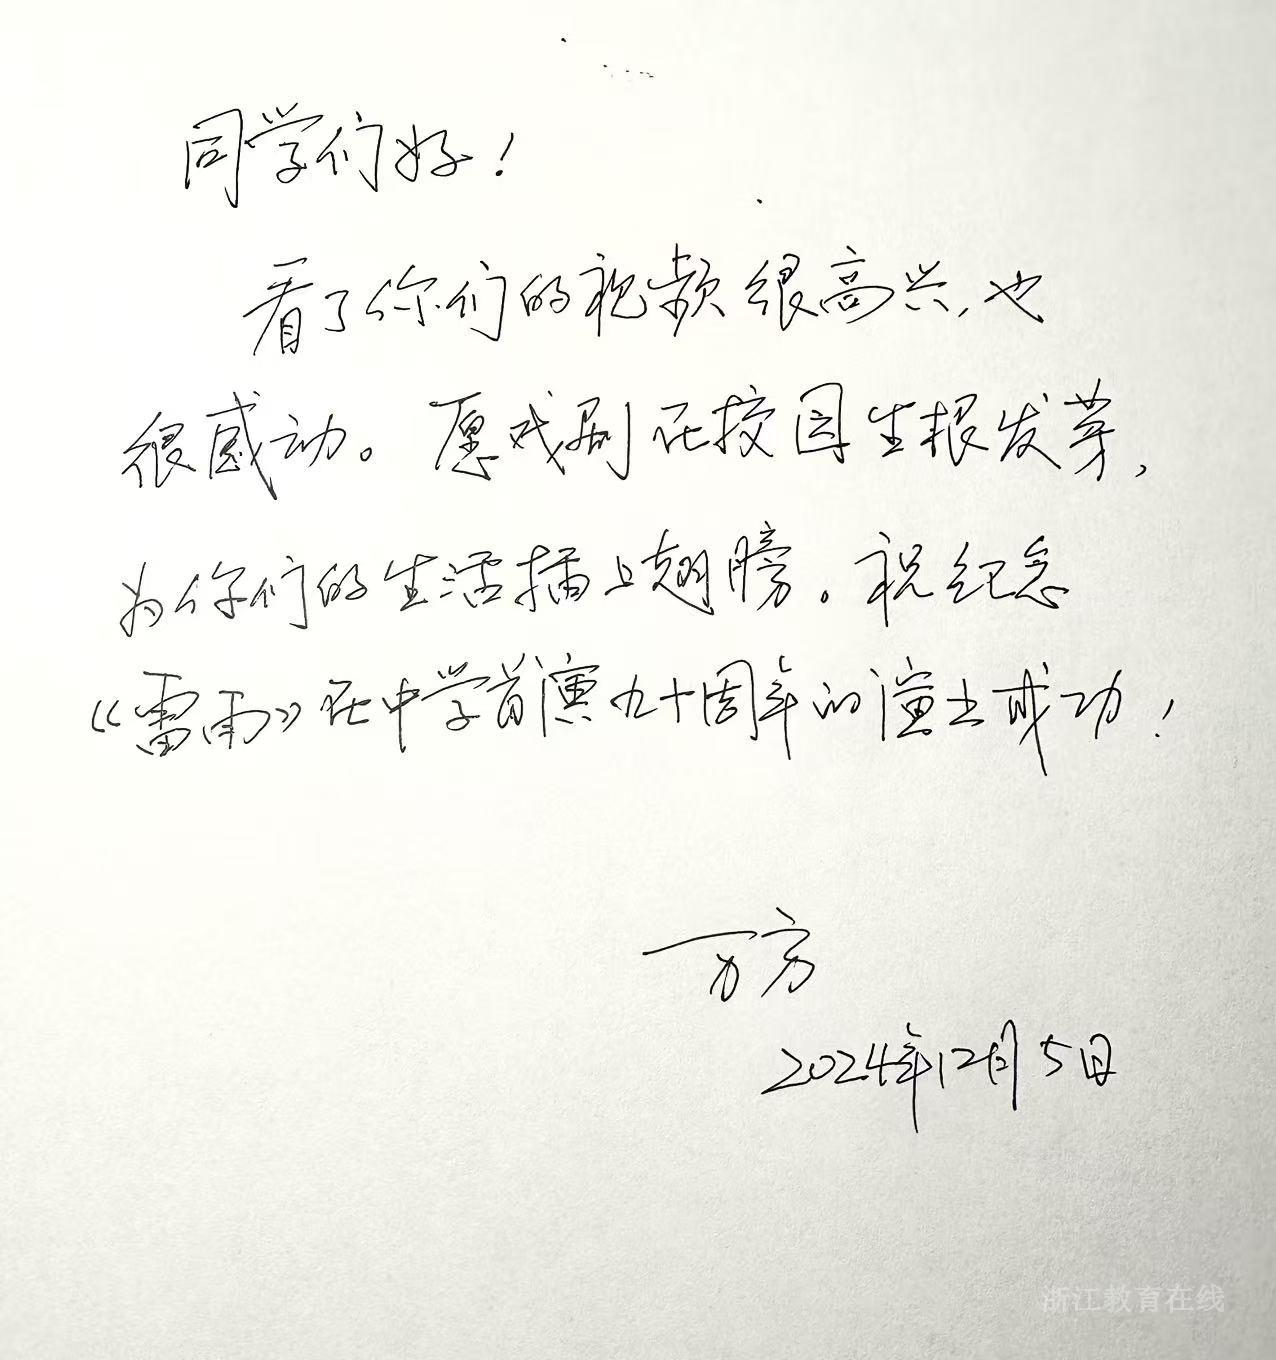 同学们好！
看了你们的视频很高兴，也
很感动。愿戏剧在校园生根发芽，
为你们的生活插上翅膀。祝纪念
《雷雨》在中学首演九十周年的演出成功！
万方
2024年12月5日
浙江教育在线